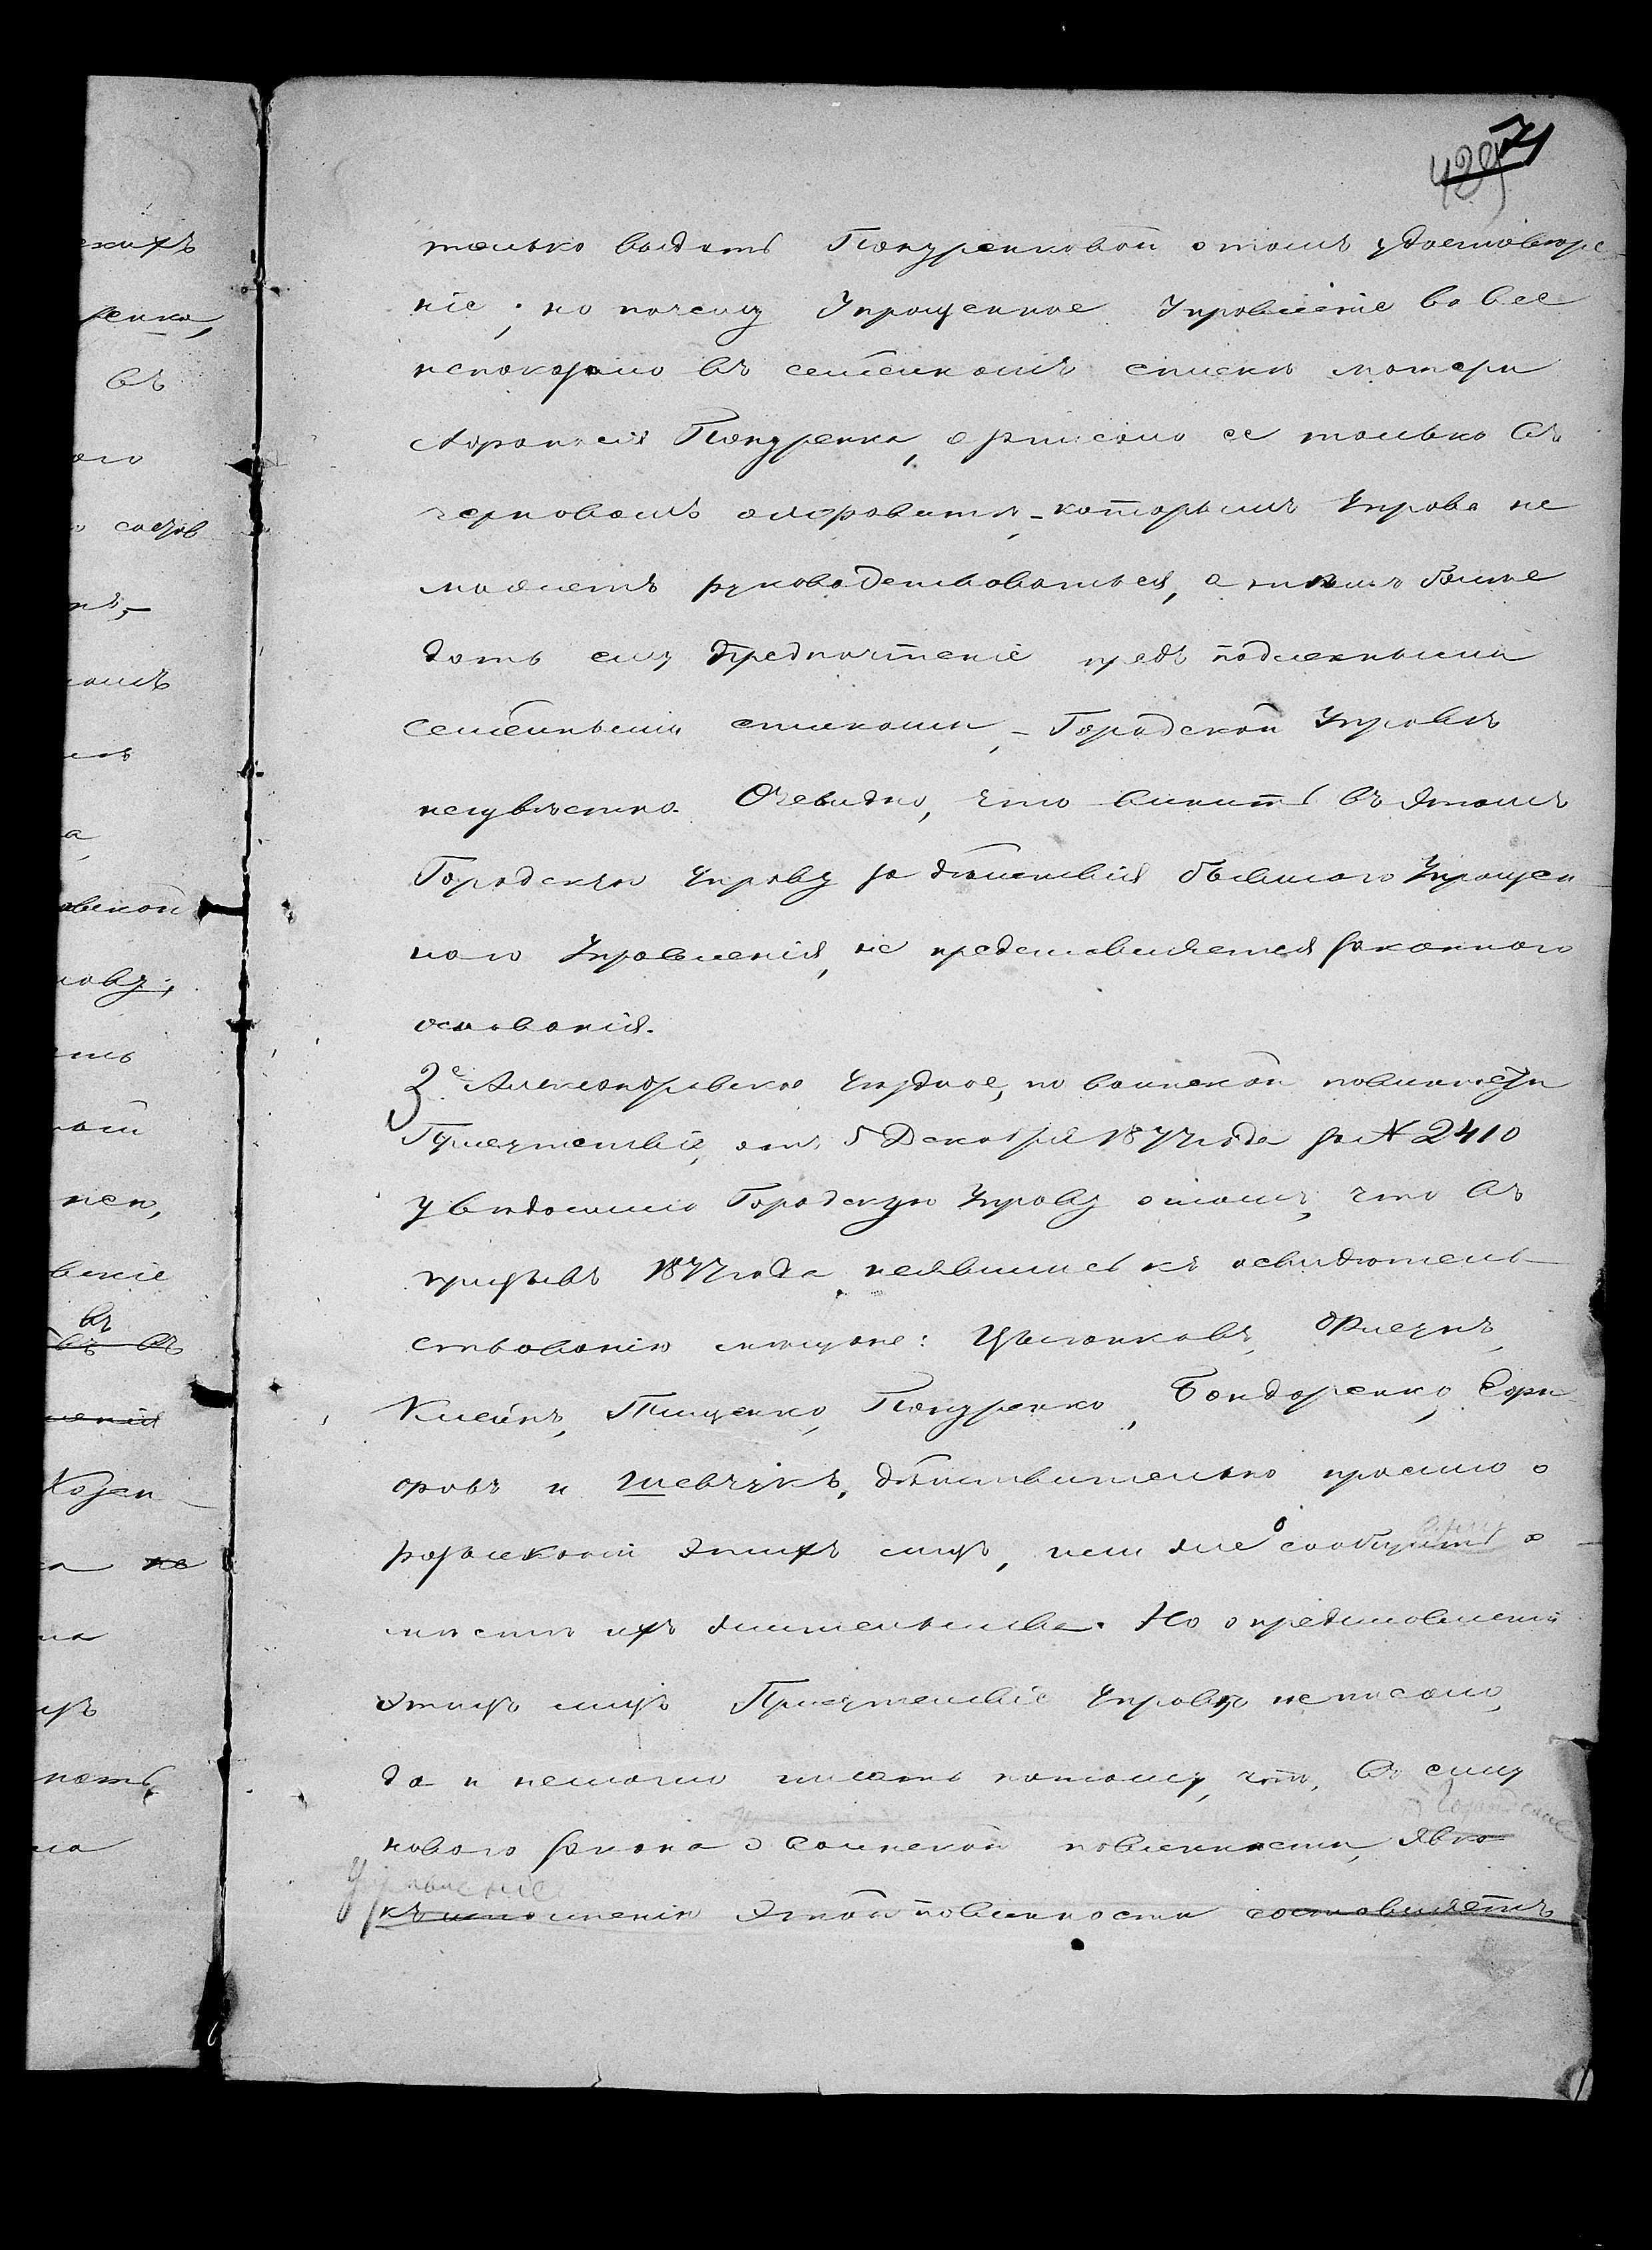 429 71
только выдать Покуренковой о томъ удостовѣре-
ніе; но почему Упрощенное Управленіе вовсе
непоказало въ семейномъ списки матери
Афанасія Покуренка, а записало ее только въ
черновомъ алфавитѣ, - которымъ Управа не
можетъ руководствоваться, а тѣмъ болѣе
дать ему предпочтеніе предъ подлежными
семейными списками, - Городской Управѣ
неизвѣстно. Очевидно, что винить въ этомъ
Городскую Управу за дѣйствія бывшаго Упрощен-
наго Управленія, не представляется законнаго
основанія.
3е. Александровское Уѣздное, по воинской повинности
Присутствіе, отъ 5 Декабря 1877 года за № 2410
увѣдомило Городскую Управу о томъ, что въ
призывъ 1877 года неявились къ освидѣтель-
ствованію мѣщане: Цыганковъ,
Клейнъ, Тищенко, Покуренко, Бондаренко,
и Шевчукъ, дѣйствительно просило о
розысканіи этихъ лицъ, или же сообщить о
мѣстѣ ихъ жительства. Но о предоставленіи
этихъ лицъ Присутствіе Управѣ неписало,
да и немогло писать потому, что, въ силу
Городское
новаго закона о воинской повинности, явка
Управленіе
къ исполненію этой повинности составляетъ
ехъ
ренка,
въ
ого
омъ
а,
нову,
нен,
вскіе
въ
въ въ
ленія
Козен-
не
ла